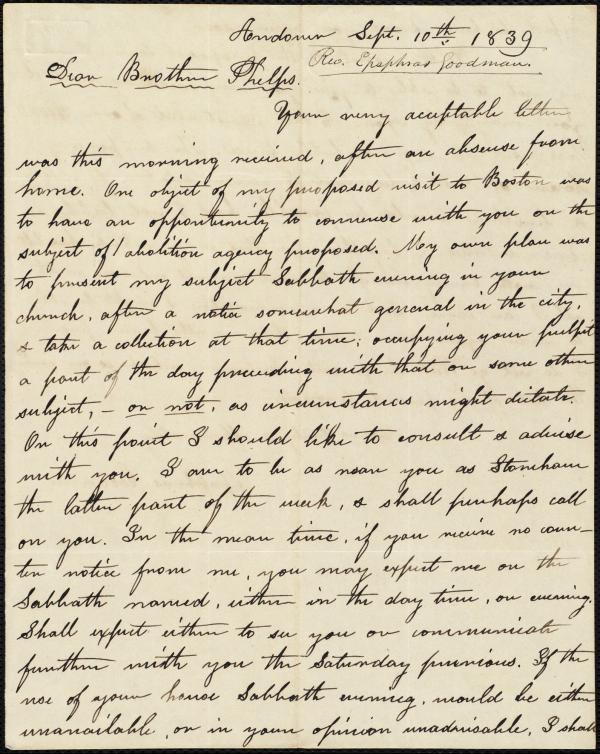 Andover Sept. 10th 1839
Rev. Epaphras Goodman.
Dear Brother Phelps.
Your very acceptable letter
was this morning received, after an absence from
home. One object of my proposed visit to Boston was
to have an opportunity to converse with you on the
subject of abolition agency proposed. My own plan was
to present my subject Sabbath evening in your
church, after a notice somewhat general in the city,
& take a collection at that time; occupying your pulpit
a part of the day preceeding with that or some other
subject, – or not, as circumstances might dictate.
On this point I should like to consult & advise
with you. I am to be as near you as Stoneham
the latter part of the week, & shall perhaps call
on you. In the mean time, if you receive no coun-
ter notice from me, you may expect me on the
Sabbath named, either in the day time, or evening.
Shall expect either to see you or communicate
further with you the Saturday previous. If the
use of your house Sabbath evening, would be either
unavailable, or in your opinion unadvisable, I shall